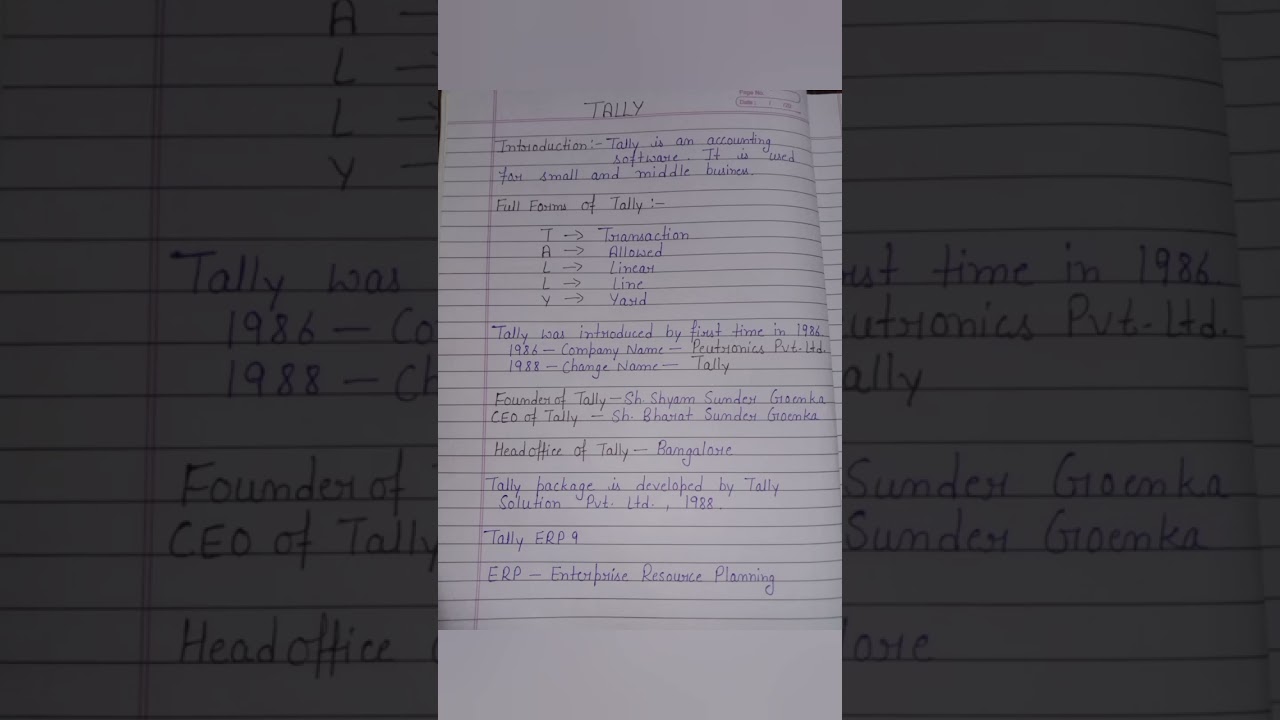 Page No.
Date :
TALLY
Introduction:- Tally is an accounting
software. It is used
for small and middle business.
Full Forms of Tally :-
T → Transaction
A → Allowed
L → Linear
L → Line
Y → Yard
Tally was introduced by first time in 1986.
1986 - Company Name - Peutronics Pvt. Ltd.
1988 - Change Name - Tally
Founder of Tally - Sh. Shyam Sunder Goenka
CEO of Tally - Sh. Bharat Sunder Goenka
Head office of Tally - Bangalore
Tally package is developed by Tally
Solution Pvt. Ltd. , 1988.
Tally ERP 9
ERP - Enterprise Resource Planning